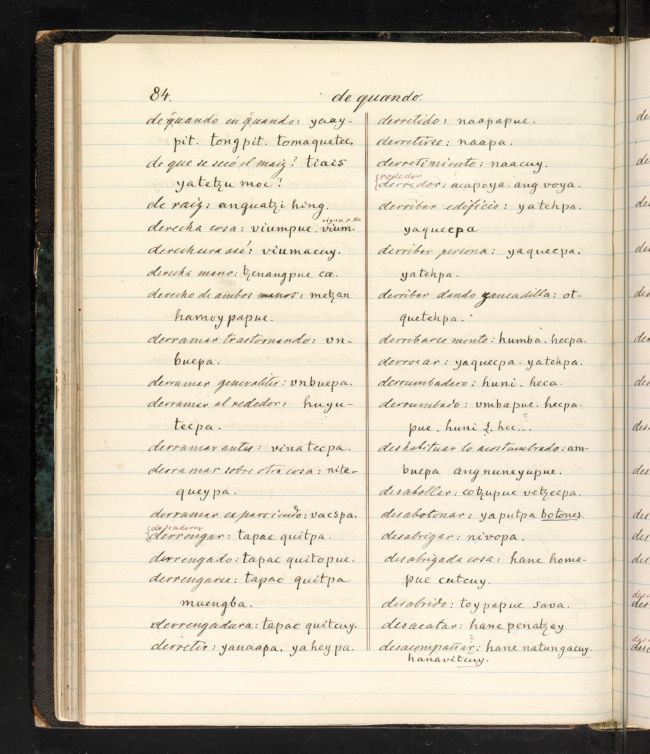 84.
de quando.
de quando en quando: yuay-
pit. tongpit. tomaquetec.
de que se secó el maiz? tiais
yatetzu moc?
de raiz: anguatzi hing.
derecha cosa: viumpue. vium.
derechura asi: viumacuy.
derecha mano: tzenangpue cæ.
derecho de ambos manos: metzan
hamoy papue.
derramar trastornando: vn-
buepa.
derramar generaliter: vnbuepa.
derramar al rededor: huyu-
tecpa.
derramar antes: vinatecpa.
derramar sobre otra cosa: nite-
queypa.
derramar esparciendo: vacspa.
derrengar: tapac quitpa.
derrengado: tapac quitopue.
derrengarse: tapac quitpa
muengba.
derrengadura: tapac quitcuy.
derretir: yanaapa. yaheypa.
derretido: naapapue.
derretirse: naapa.
derretimiento: naacuy.
rededor
derredor: acapoya. angvoya.
derribar edificio: yatehpa.
yaquecpa
derribar persona: yaquecpa.
yatehpa.
derribar dando zancadilla: ot-
quetehpa.
derribarse monte: humba. hecpa.
derrocar: yaquecpa. yatehpa.
derrumbadero: huni. heca.
derrumbado: vmbapue. hecpa-
pue. huni
deshabituar lo acostumbrado: am-
buepa angnuneyupue.
desabollar: cotzupue vetzecpa.
desabotonar: yaputpa botones.
desabrigar: nivopa.
desabrigada cosa: hane home-
pue cutcuy.
desabrido: toypapue sava.
desacatar: hane penatzay
desacompañar: hane natungacuy.
hanavitcuy.